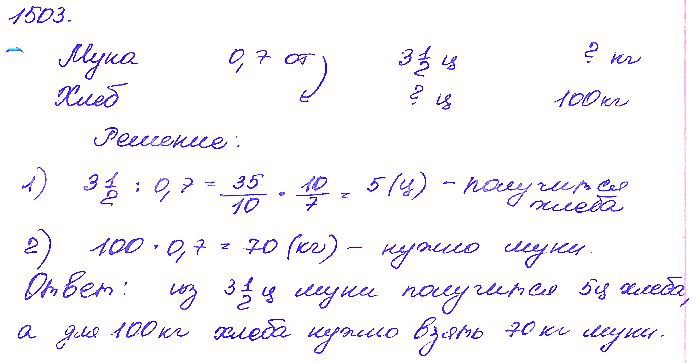 1503.
Мука 0,7 от 3 1/2 ц ? кг
Хлеб ? ц 100 кг
Решение:
1) 3 1/2 : 0,7 = 35/10 · 10/7 = 5 (ц) – получится
хлеба
2) 100 · 0,7 = 70 (кг) – нужно муки.
Ответ: из 3 1/2 ц муки получится 5ц хлеба,
а для 100 кг хлеба нужно взять 70 кг муки.